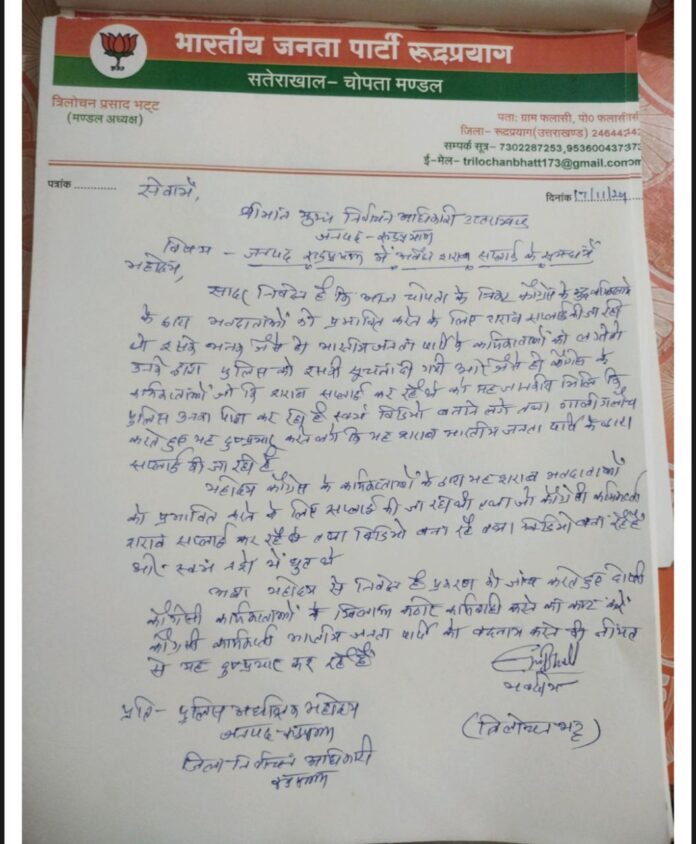 भारतीय जनता पार्टी रूद्रप्रयाग
सतेराखाल- चोपता मण्डल
त्रिलोचन प्रसाद भट्ट
(मण्डल अध्यक्ष)
पता: ग्राम फलासी, पो० फलासी
जिला- रूद्रप्रयाग(उत्तराखण्ड)
सम्पर्क सूत्र- 7302287253,9536004373
ई-मेल- trilochanbhatt173@gmail.com
पत्रांक ............
दिनांक 17/11/24
सेवामें,
श्रीमान मुख्य निर्वाचन अधिकारी उत्तराखण्ड
जनपद - रूद्रप्रयाग
विषय - जनपद रूद्रप्रयाग में अवैध शराब सप्लाई के सम्बन्ध में
महोदय,
सादर निवेदन है कि आज चोपता के निकट कांग्रेस के कुछ कार्यकर्ताओं
के द्वारा मतदाताओं को प्रभावित करने के लिए शराब सप्लाई की जा रही
थी इसकी भनक जैसे ही भारतीय जनता पार्टी के कार्यकर्ताओं को लगी तो
उनके द्वारा पुलिस को इसकी सूचना दी गयी और जैसे ही कांग्रेस के
कार्यकर्ताओं जो कि शराब सप्लाई कर रहे थे को यह कि
पुलिस उनका पीछा कर रही है स्वयं विडियो बनाने लगे तथा गाली गलौच
करते हुए यह दुष्प्रचार करने लगे कि यह शराब भारतीय जनता पार्टी के द्वारा
सप्लाई की जा रही है
महोदय कांग्रेस के कार्यकर्ताओं के द्वारा यह शराब मतदाताओं
को प्रभावित करने के लिए सप्लाई की जा रही थी तथा जो कांग्रेसी कार्यकर्ता
शराब सप्लाई कर रहे थे तथा विडियो बना रहे तथा विडियो बना रहे हैं
स्वयं नशे में धुत थे
अतः महोदय से निवेदन है प्रकरण की जांच करते हुए दोषी
कांग्रेसी कार्यकर्ताओं के खिलाफ कठोर कार्यवाही करने की करें
कांग्रेसी कार्यकर्ता भारतीय जनता पार्टी को बदनाम करने की नीयत
से यह दुष्प्रचार कर रहे हैं
भवदीय
(त्रिलोचन भट्ट)
प्रति- पुलिस अधीक्षक महोदय
जनपद-रूद्रप्रयाग
जिला-निर्वाचन अधिकारी
रूद्रप्रयाग